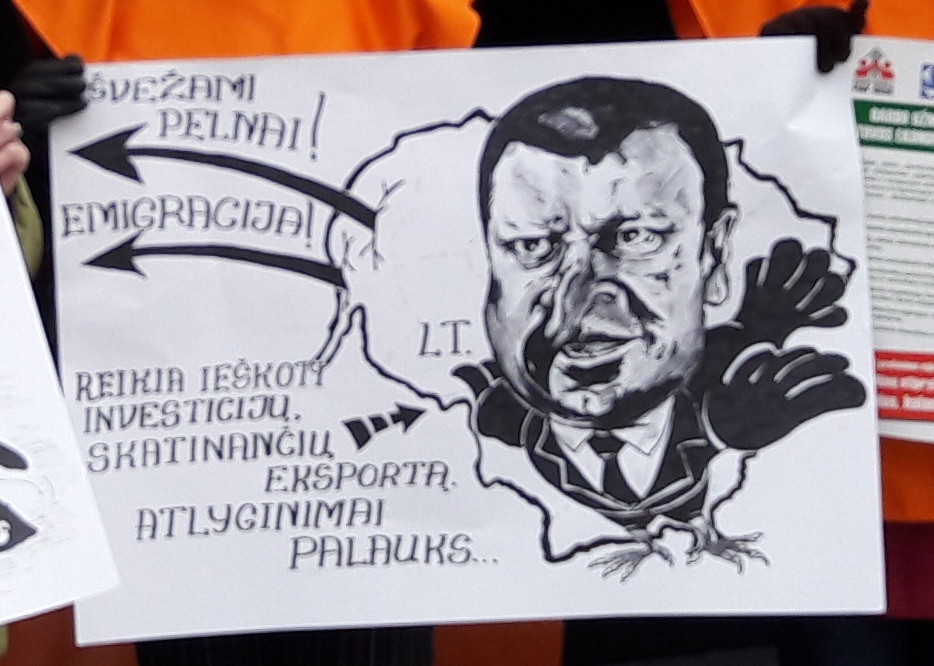 ŠVEŽAMI
PELNAI!
EMIGRACIJA!
LT.
REIKIA IEŠKOTI
INVESTICIJŲ,
SKATINANČIŲ
EKSPORTĄ.
ATLYGINIMAI
PALAUKS...